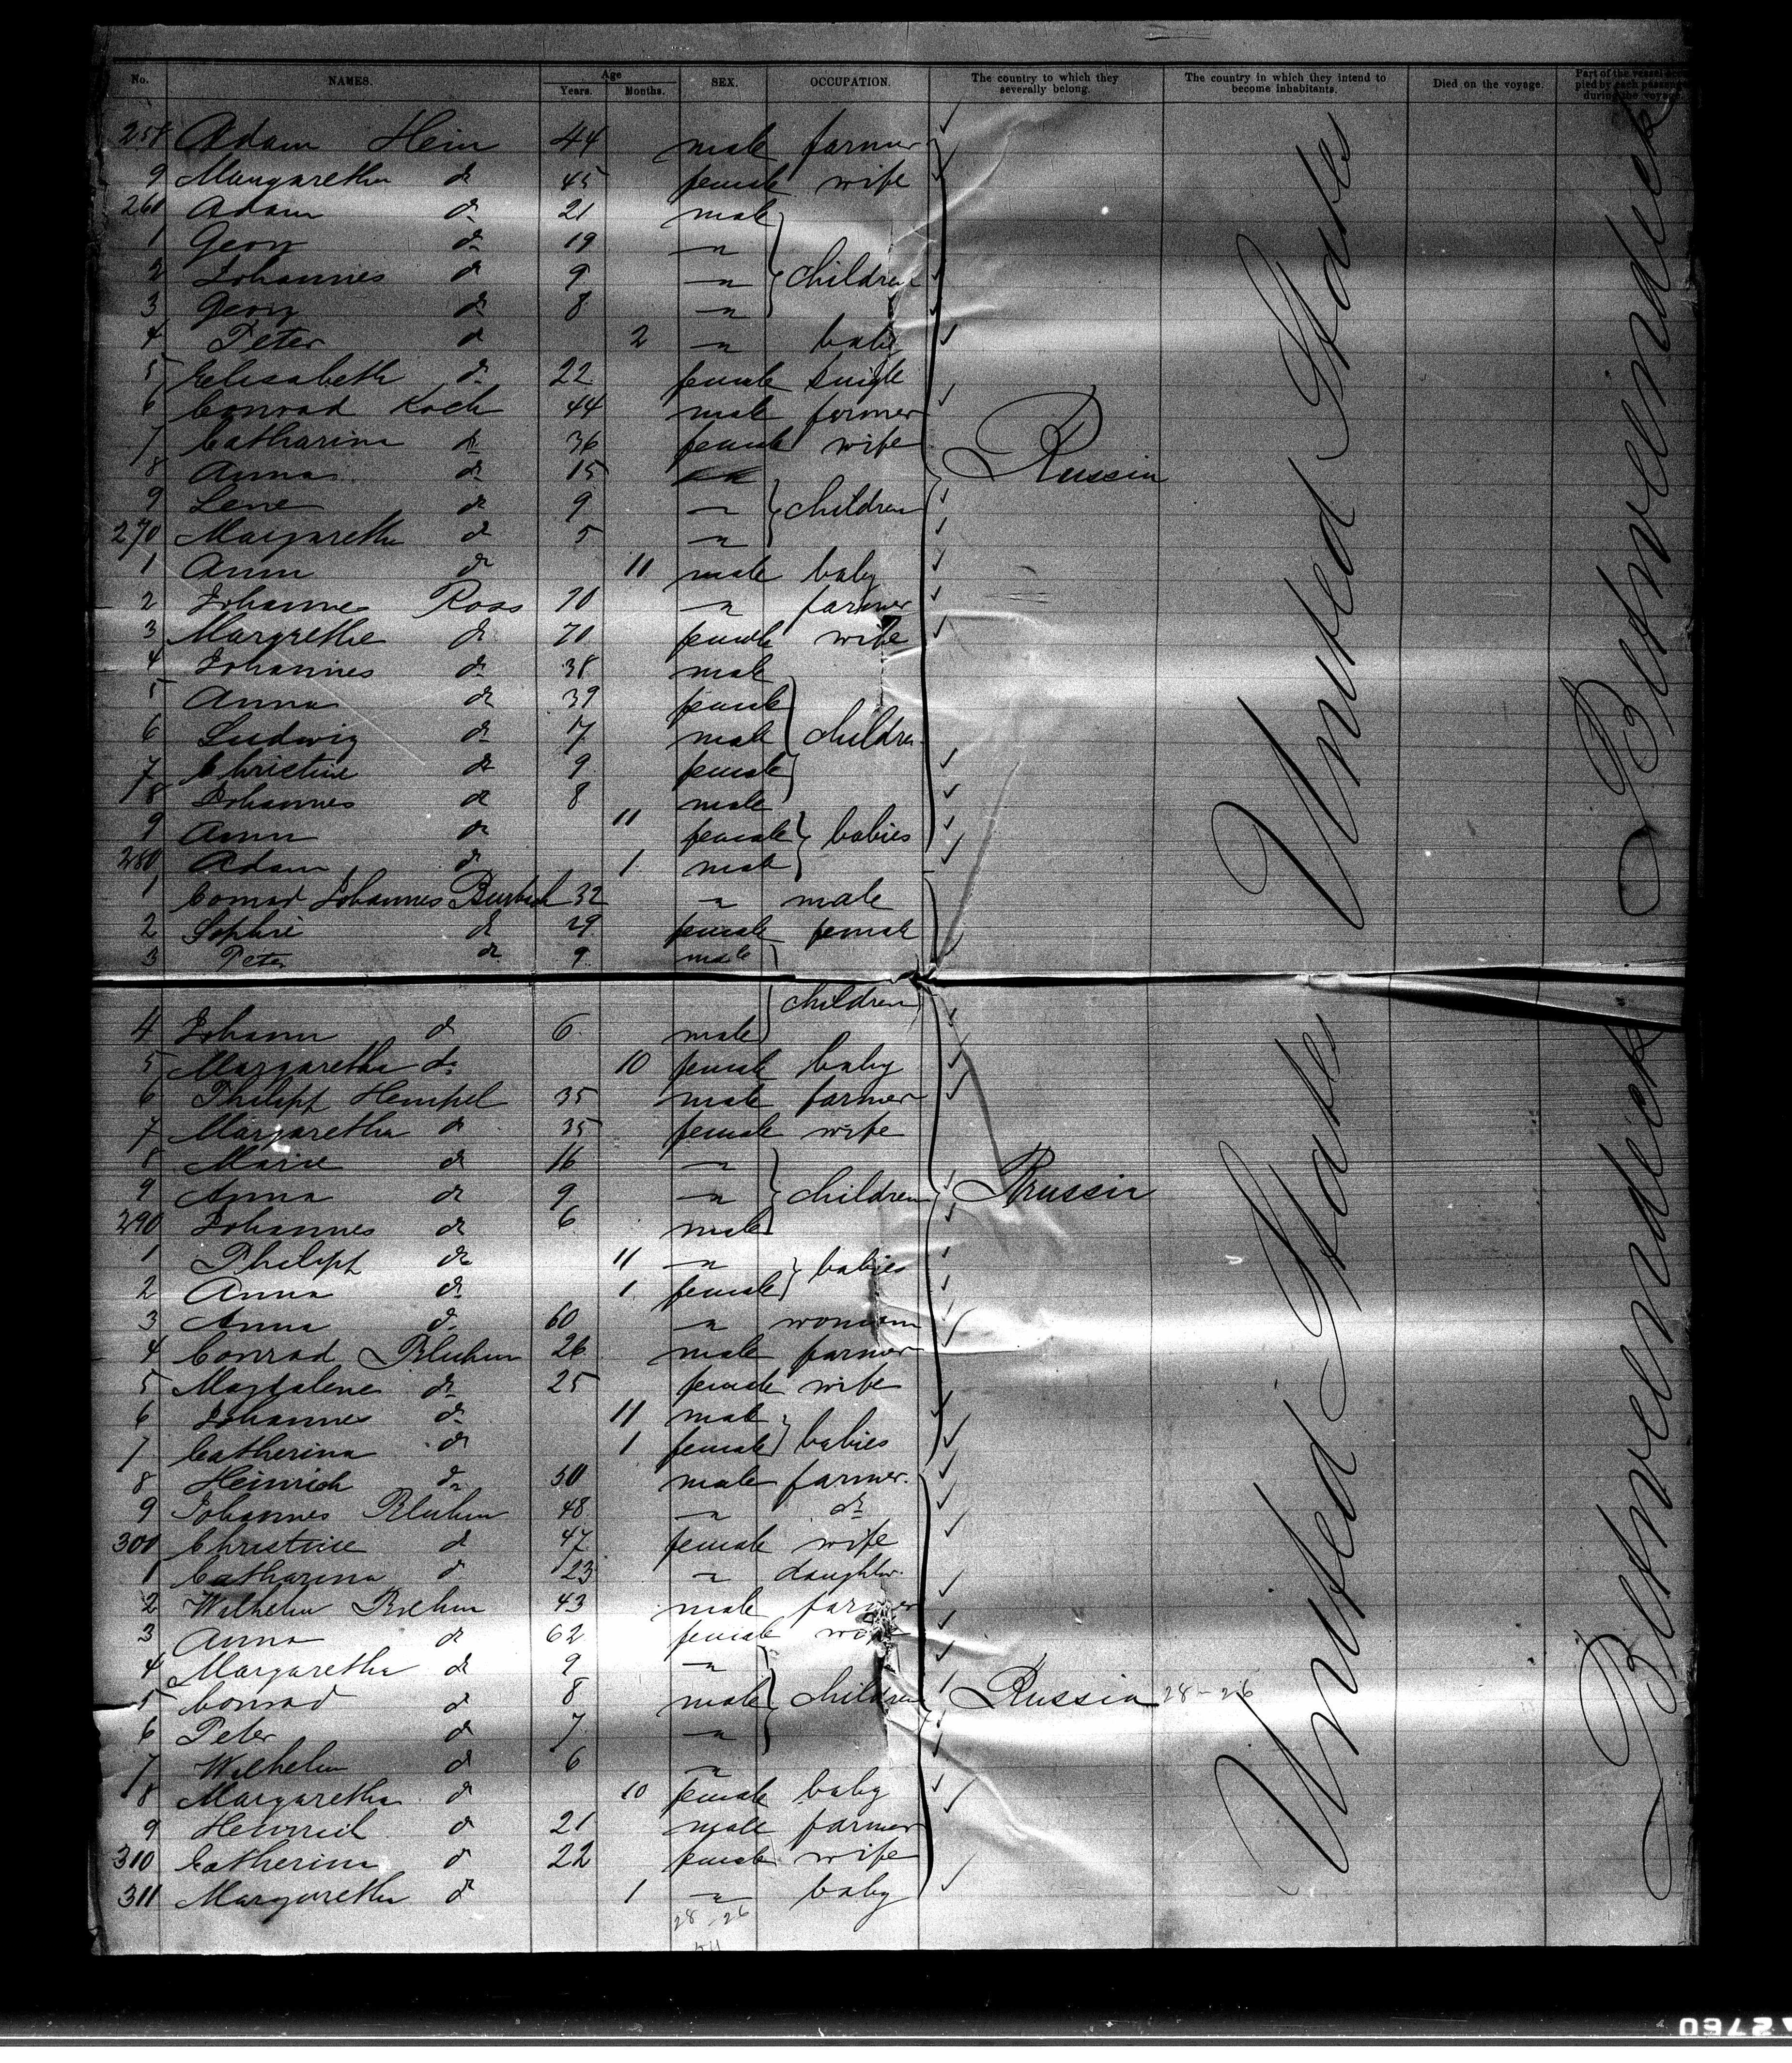 No. NAMES. Age Years. Months. SEX. OCCUPATION. The country to which they severally belong. The country in which they intend to become inhabitants. Died on the voyage. Part of the vessel occupied by each passenger during the voyage.
258 Adam Hein 44 male farmer
9 Margaretha do 45 female wife
260 Adam do 21 male
1 Georg do 19 "
2 Johannes do 9 " children
3 Georg do 8 "
4 Peter do 2 " baby
5 Elisabeth do 22 female single
6 Conrad Koch 44 male farmer
7 Catharina do 36 female wife
8 Anna do 15 Russia
9 Lene do 9 " children
270 Margaretha do 5 "
1 Anna do 11 male baby
2 Johannes Roos 70 " farmer
3 Margrethe do 70 female wife
4 Johannes do 38 male
5 Anna do 39 female
6 Ludwig do 17 male children
7 Christine do 9 female
8 Johannes do 8 male
9 Anna do 11 female babies
280 Adam do 1 male
1 Conrad Johannes 32 " male
2 Sophie do 29 female female
3 Peter do 9 male
children
4 Johann do 6 male
5 Margaretha do 10 female baby
6 Philipp Hempel 35 male farmer
7 Margaretha do 35 female wife
8 Marie do 16 "
9 Anna do 9 " children Russia
290 Johannes do 6 male
1 Philipp do 11 " babies
2 Anna do 1 female
3 Anna do 60 "
4 Conrad Bluhm 26 male farmer
5 Magdalene do 25 female wife
6 Johannes do 11 male babies
7 Catherina do 1 female
8 Heinrich do 50 male farmer
9 Johannes Bluhm 48 " do
300 Christine do 47 female wife
1 Catharina do 23 " daughter
2 Wilhelm 43 male farmer
3 Anna do 62 female wife
4 Margaretha do 9 "
5 Conrad do 8 male children Russia 28-26
6 Peter do 7 "
7 Wilhelm do 6 "
8 Margaretha do 10 female baby
9 Heinrich do 21 male farmer
310 Catherina do 22 female wife
311 Margaretha do 1 " baby
28-26
54
United States
United States
Betweendeck
Betweendeck